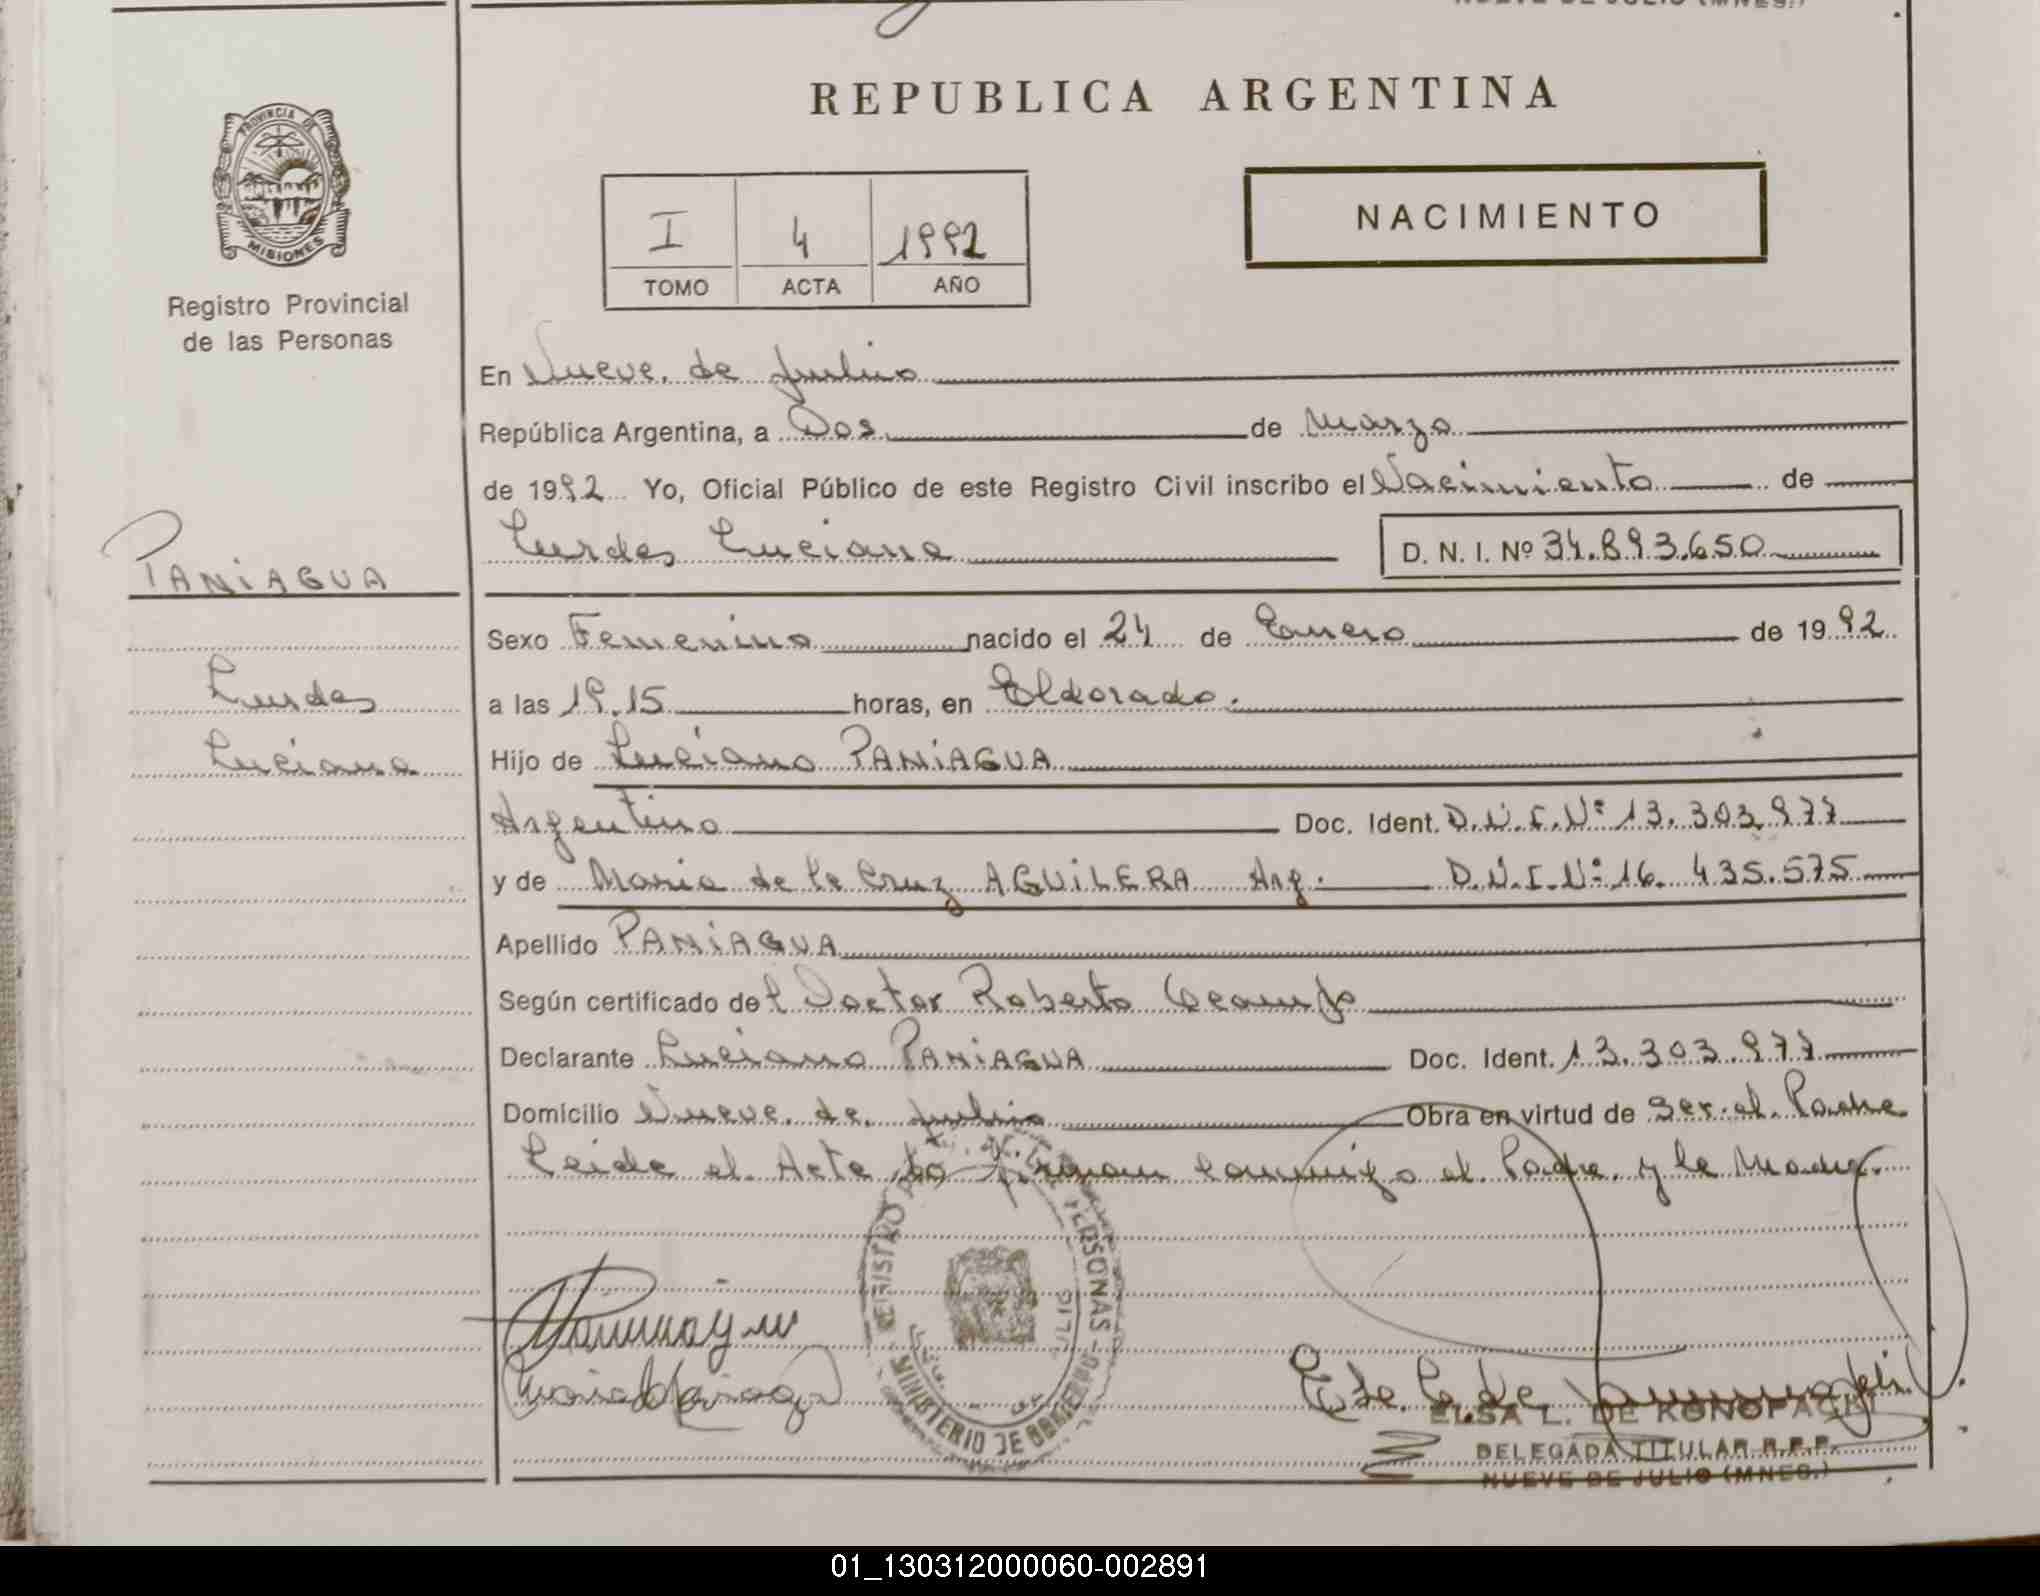 REPUBLICA ARGENTINA
PROVINCIA DE
MISIONES
Registro Provincial
de las Personas
I 4 1992
TOMO ACTA AÑO
NACIMIENTO
En Nueve de Julio
República Argentina, a Dos de Marzo
de 1992 Yo, Oficial Público de este Registro Civil inscribo el Nacimiento de
Lurdes Luciana D. N. I. Nº 34.893.650
PANiAGUA
Sexo Femenino nacido el 24 de Enero de 1992
Lurdes
a las 19.15 horas, en Eldorado.
Luciana
Hijo de Luciano PANiAGUA
Argentino Doc. Ident. D.N.I.Nº 13.303.977
y de Maria de la Cruz AGUiLERA Arg. D.N.I.Nº 16.435.575
Apellido PANiAGUA
Según certificado del Doctor Roberto Ocampo
Declarante Luciano PANiAGUA Doc. Ident. 13.303.977
Domicilio Nueve de Julio Obra en virtud de ser el Padre
Leida el Acta la firman conmigo el Padre y la Madre.
PERSONAS
MINISTERIO DE GOBIERNO
ELSA L. DE KONOPACKI
DELEGADA TITULAR R.P.P.
NUEVE DE JULIO (MNES.)
01_130312000060-002891